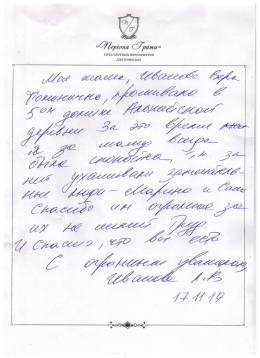 «Персона Грата»
Сеть частных пансионатов
для пожилых
Моя мама, Иванова Вера
Фоминична, проживала в
5ом домике Альпийской
деревни. За это время
я за маму всегда
была спокойна, т.к за
ней ухаживали замечатель-
ные люди – Марина и Саша
Спасибо им огромное за
их не легкий Труд.
И Спасибо, что вы есть
С огромным уважением,
Иванова Л.В.
17.11.19